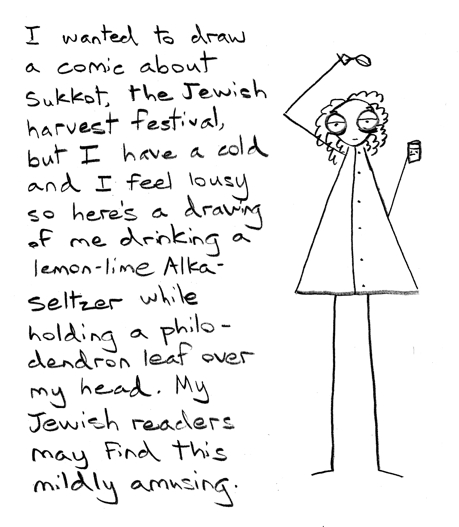 I wanted to draw
a comic about
Sukkot, the Jewish
harvest festival,
but I have a cold
and I feel lousy
so here's a drawing
of me drinking a
lemon-lime Alka-
Seltzer while
holding a philo-
dendron leaf over
my head. My
Jewish readers
may find this
mildly amusing.